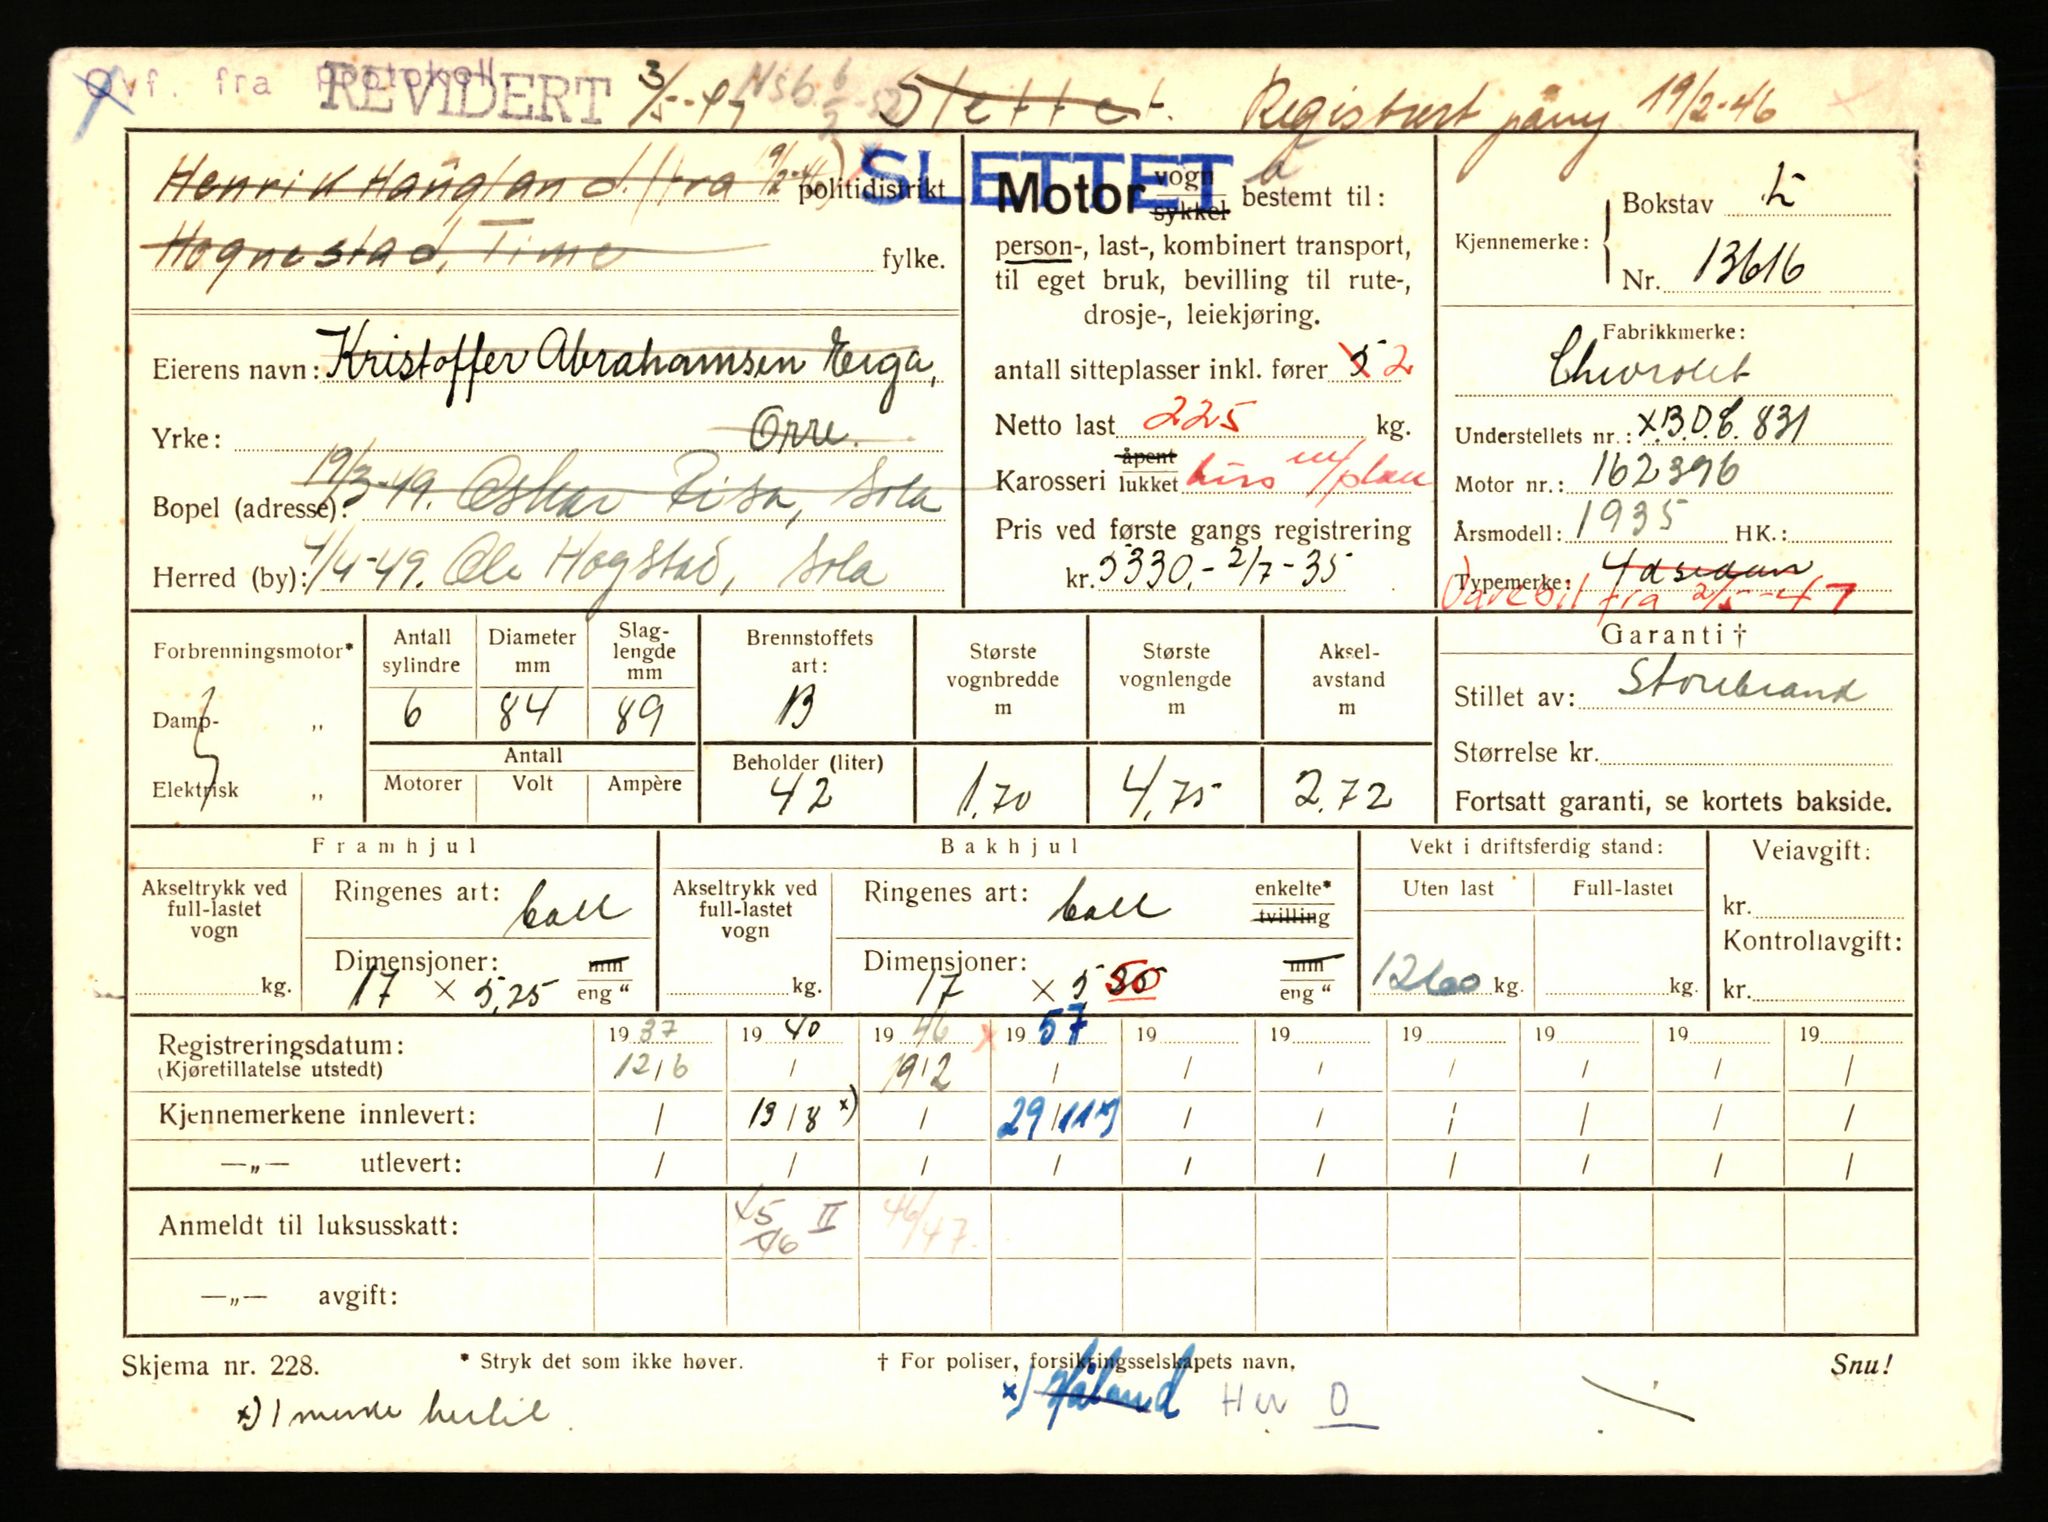 Ovf. fra protokoll REVIDERT 3/5-47 Slettet. Registrert påny 19/2-46
SLETTET
Henrik Haugland. (fra 19/2-46) politidistrikt
Hognestad, Time fylke.
Eierens navn: Kristoffer Abrahamsen Eiga,
Yrke: Orre.
Bopel (adresse): 19/3-49. Oskar Risa, Sola
Herred (by): 1/4-49. Ole Hogstad, Sola
Motor vogn sykkel bestemt til:
person-, last-, kombinert transport,
til eget bruk, bevilling til rute-,
drosje-, leiekjøring.
antall sitteplasser inkl. fører 5 2
Netto last 225 kg.
Karosseri åpent lukket hus m/plan
Pris ved første gangs registrering
kr. 5330.- 2/7-35
Kjennemerke: Bokstav L
Nr. 13616
Fabrikkmerke:
Chevrolet
Understellets nr.: X.B.D.C. 831
Motor nr.: 162396
Årsmodell: 1935 HK.:
Typemerke: 4d sedan
Varebil fra 2/5-47
Forbrenningsmotor*
Damp- „
Elektrisk „
Antall sylindre Diameter mm Slag-lengde mm
6 84 89
Antall
Motorer Volt Ampère
Brennstoffets art:
B
Beholder (liter)
42
Største vognbredde m
1,70
Største vognlengde m
4,75
Aksel-avstand m
2,72
Garanti †
Stillet av: Storebrand
Størrelse kr.
Fortsatt garanti, se kortets bakside.
Framhjul
Akseltrykk ved full-lastet vogn
kg.
Ringenes art: ball
Dimensjoner: mm
17 × 5,25 eng "
Bakhjul
Akseltrykk ved full-lastet vogn
kg.
Ringenes art: ball enkelte* tvilling
Dimensjoner: mm
17 × 5 50 eng "
Vekt i driftsferdig stand:
Uten last Full-lastet
kg. kg.
Veiavgift:
kr.
Kontrollavgift:
kr.
Registreringsdatum: 19 37 19 40 19 46 19 57 19 19 19 19 19 19
(Kjøretillatelse utstedt) 12/6 / 19/2 / / / / / / /
Kjennemerkene innlevert: / 13/8 x) / 29/11 x) / / / / / /
—„— utlevert: / / / / / / / / / /
Anmeldt til luksusskatt: 45/46 II 46/47
—„— avgift:
Skjema nr. 228. * Stryk det som ikke høver. † For poliser, forsikringsselskapets navn. Snu!
x) 1 merke
x) Håland Her O